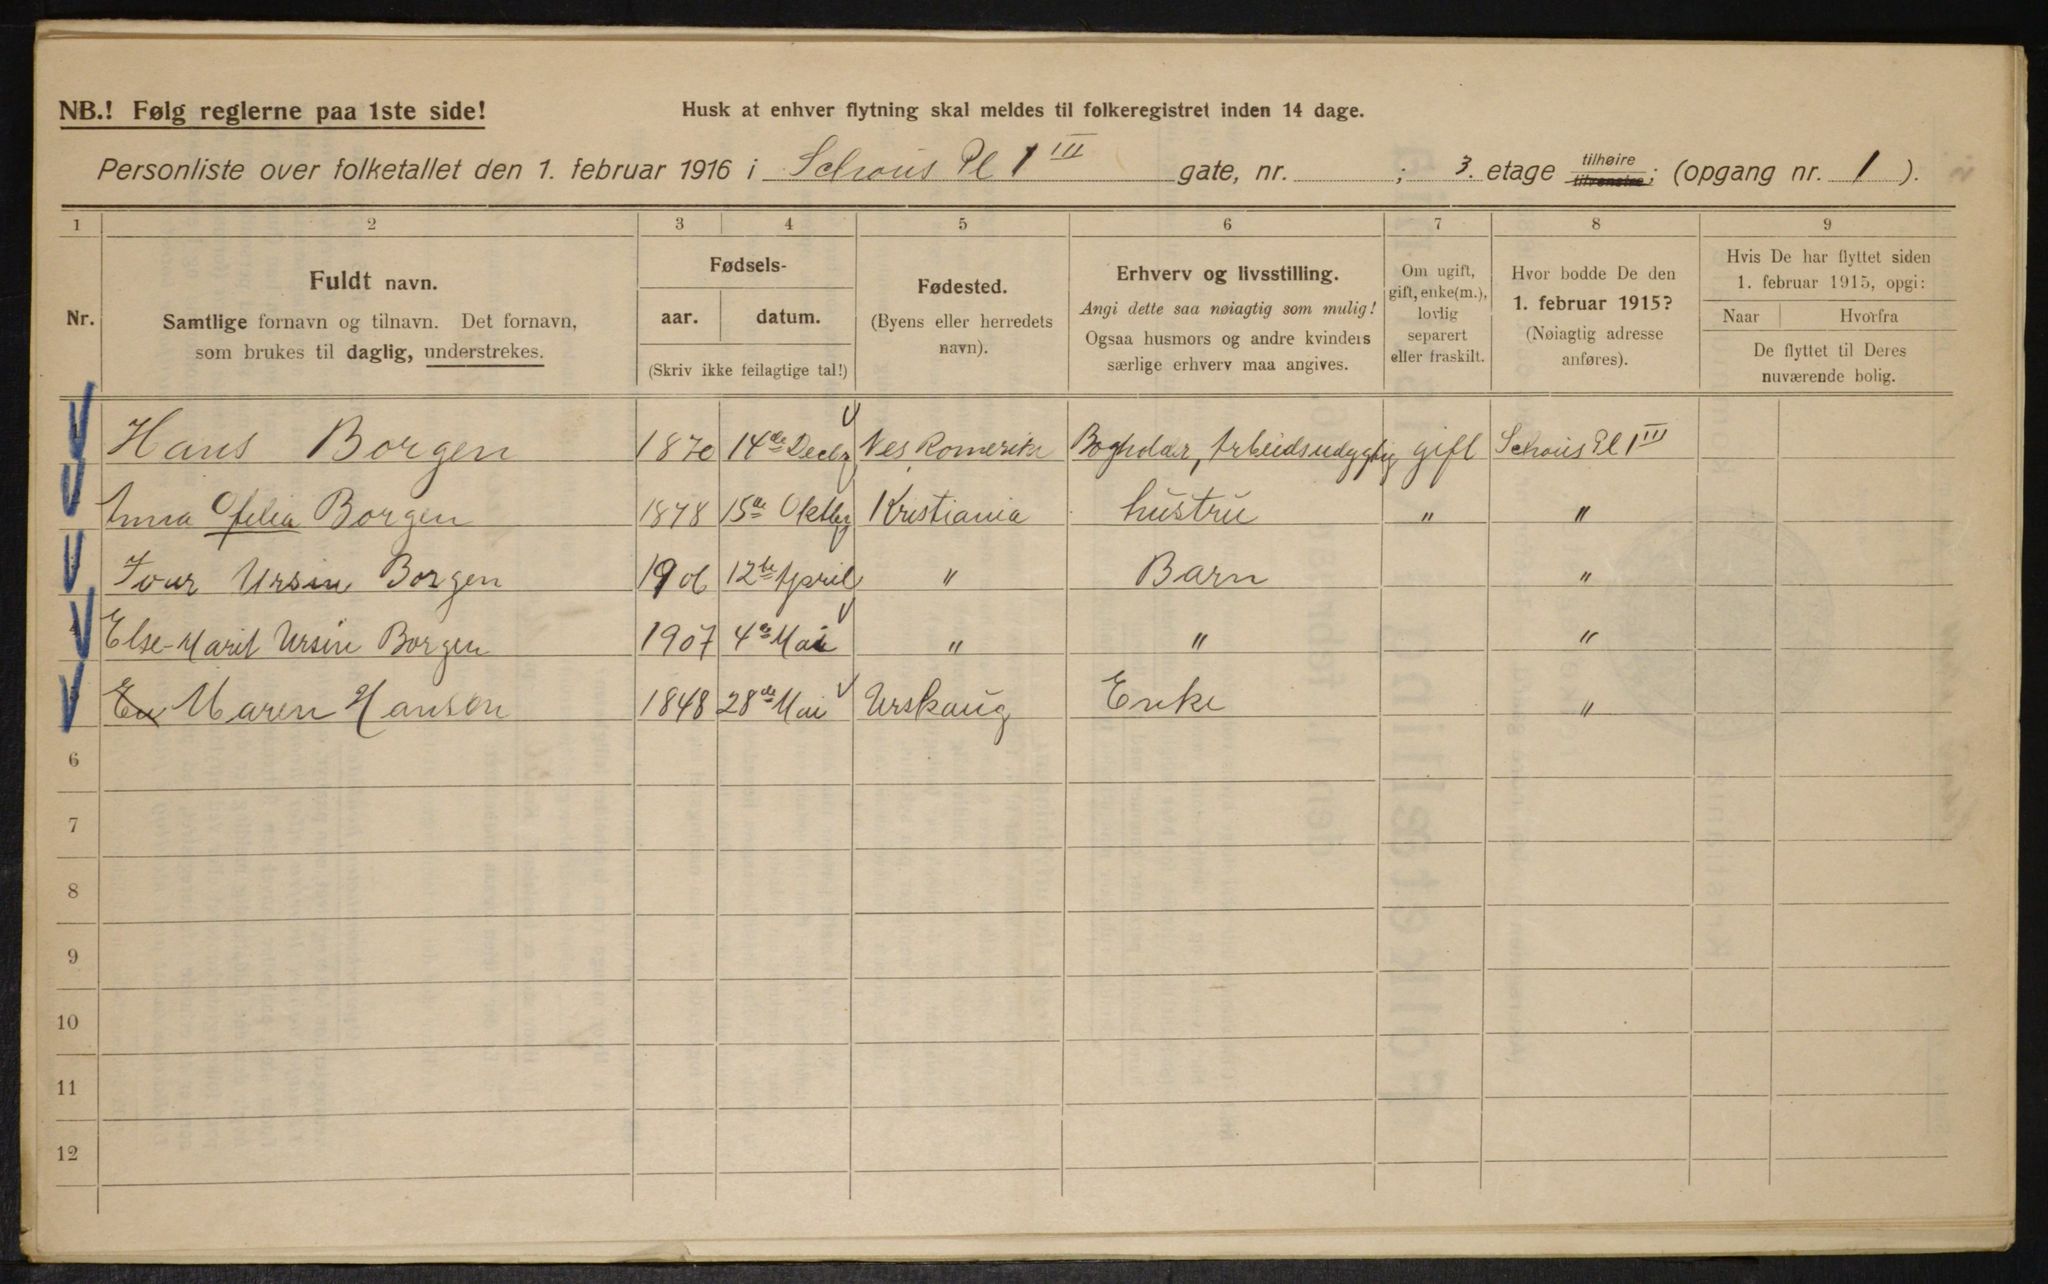 NB.! Følg reglerne paa 1ste side!
Husk at enhver flytning skal meldes til folkeregistret inden 14 dage.
Personliste over folketallet den 1. februar 1916 i Schous Pl 1 III gate, nr. ; 3. etage tilhøire tilvenstre; (opgang nr. 1 ).
1 2 3 4 5 6 7 8 9
Nr.
Fuldt navn.
Samtlige fornavn og tilnavn. Det fornavn,
som brukes til daglig, understrekes.
Fødsels-
aar. datum.
(Skriv ikke feilagtige tal!)
Fødested.
(Byens eller herredets
navn).
Erhverv og livsstilling.
Angi dette saa nøiagtig som mulig!
Ogsaa husmors og andre kvinders
særlige erhverv maa angives.
Om ugift,
gift, enke(m.),
lovlig
separert
eller fraskilt.
Hvor bodde De den
1. februar 1915?
(Nøiagtig adresse
anføres).
Hvis De har flyttet siden
1. februar 1915, opgi:
Naar Hvorfra
De flyttet til Deres
nuværende bolig.
Hans Borgen 1870 14de Decbr Nes Romerike Bogholder, Arbeidsudygtig gift Schous Pl 1 III
Anna Ofelia Borgen 1878 15de Oktbr Kristiania hustru " "
Ivar Ursin Borgen 1906 12te April " Barn "
Else-Marit Ursin Borgen 1907 4de Mai " " "
En Maren Hansen 1848 28de Mai Urskaug Enke "
6
7
8
9
10
11
12